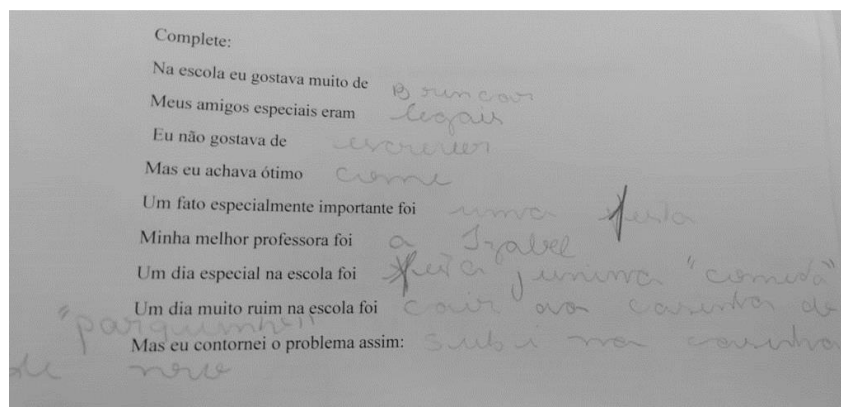 Complete:
Na escola eu gostava muito de Brincar
Meus amigos especiais eram legais
Eu não gostava de escrever
Mas eu achava ótimo come
Um fato especialmente importante foi uma festa
Minha melhor professora foi a Izabel
Um dia especial na escola foi festa junina "comida"
Um dia muito ruim na escola foi cair da casinha do
"parquinho"
Mas eu contornei o problema assim: subi na casinha
de novo